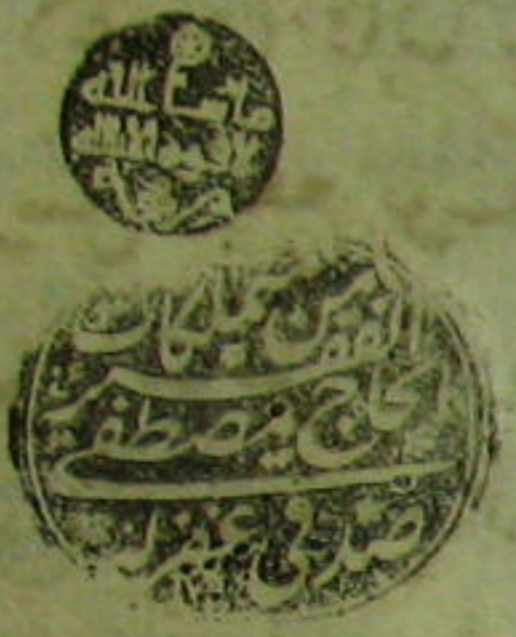 ما شاء الله
من تملكات
الفقير
الحاج مصطفى
صدقي غفر له